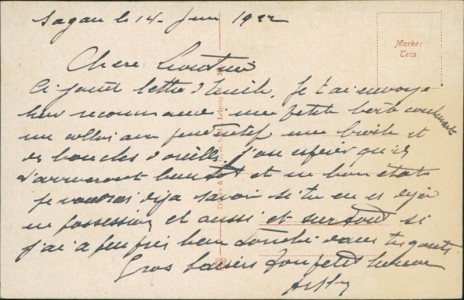 Sagan le 14. Juin 1922
Marke:
Teco
Chere
Ci joint lettre d'Emile. Je t'ai envoyé
hier recommandé une petite boite contenant
un collier avec pendentif une broche et
des boucles d'oreilles j'ose espérer qu'ils
t'arriveront bientot et en bon état
je voudrais deja savoir si tu en es deja
en possession et aussi et surtout si
j'ai a peu près bien touché dans tes gouts.
Gros baisers ton petit